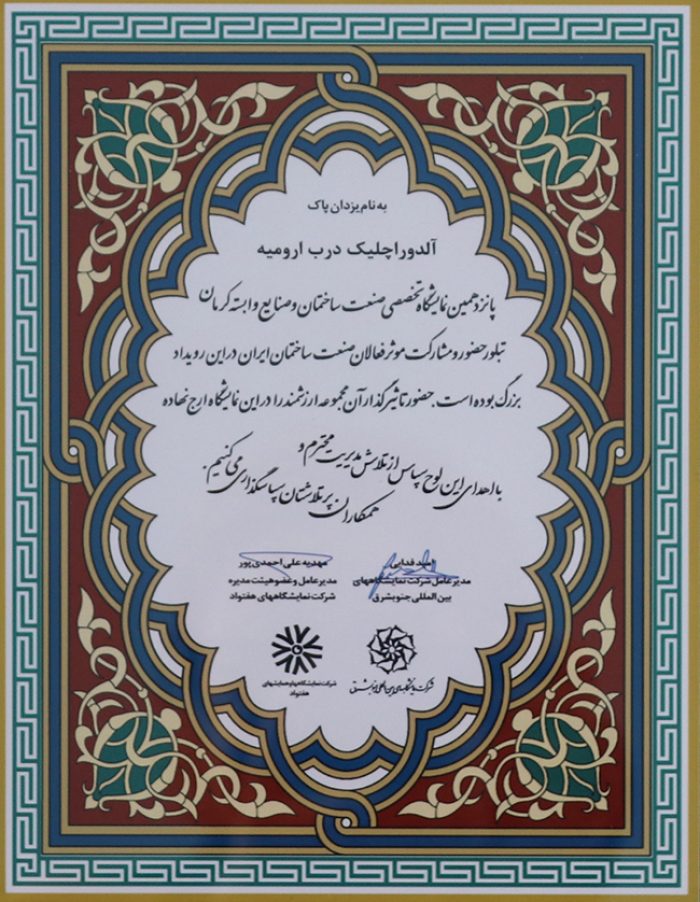 به نام یزدان پاک
آلدورا چلیک درب ارومیه
پانزدهمین نمایشگاه تخصصی صنعت ساختمان و صنایع وابسته کرمان
تبلور حضور و مشارکت موثر فعالان صنعت ساختمان ایران در این رویداد
بزرگ بوده است. حضور تاثیرگذار آن مجموعه ارزشمند را در این نمایشگاه ارج نهاده
با اهدای این لوح سپاس از تلاش مدیریت محترم و
همکاران پرتلاشتان سپاسگذاری می کنیم.
امید فدایی
مدیرعامل شرکت نمایشگاههای
بین المللی جنوبشرق
مهدیه علی احمدی پور
مدیرعامل و عضو هیئت مدیره
شرکت نمایشگاههای هفتواد
شرکت نمایشگاههای بین المللی جنوبشرق
شرکت نمایشگاهها و همایشهای
هفتواد